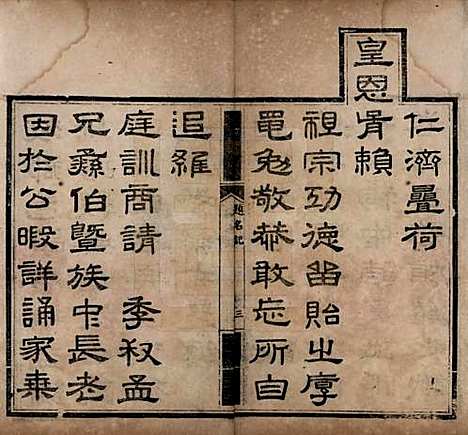 仁濟疊荷
皇恩胥賴
祖宗功德留貽之厚
黽勉敬恭敢忘所自
題名記
三
追維
庭訓商請 季叔孟
兄彝伯暨族中長老
因於公暇詳誦家乘